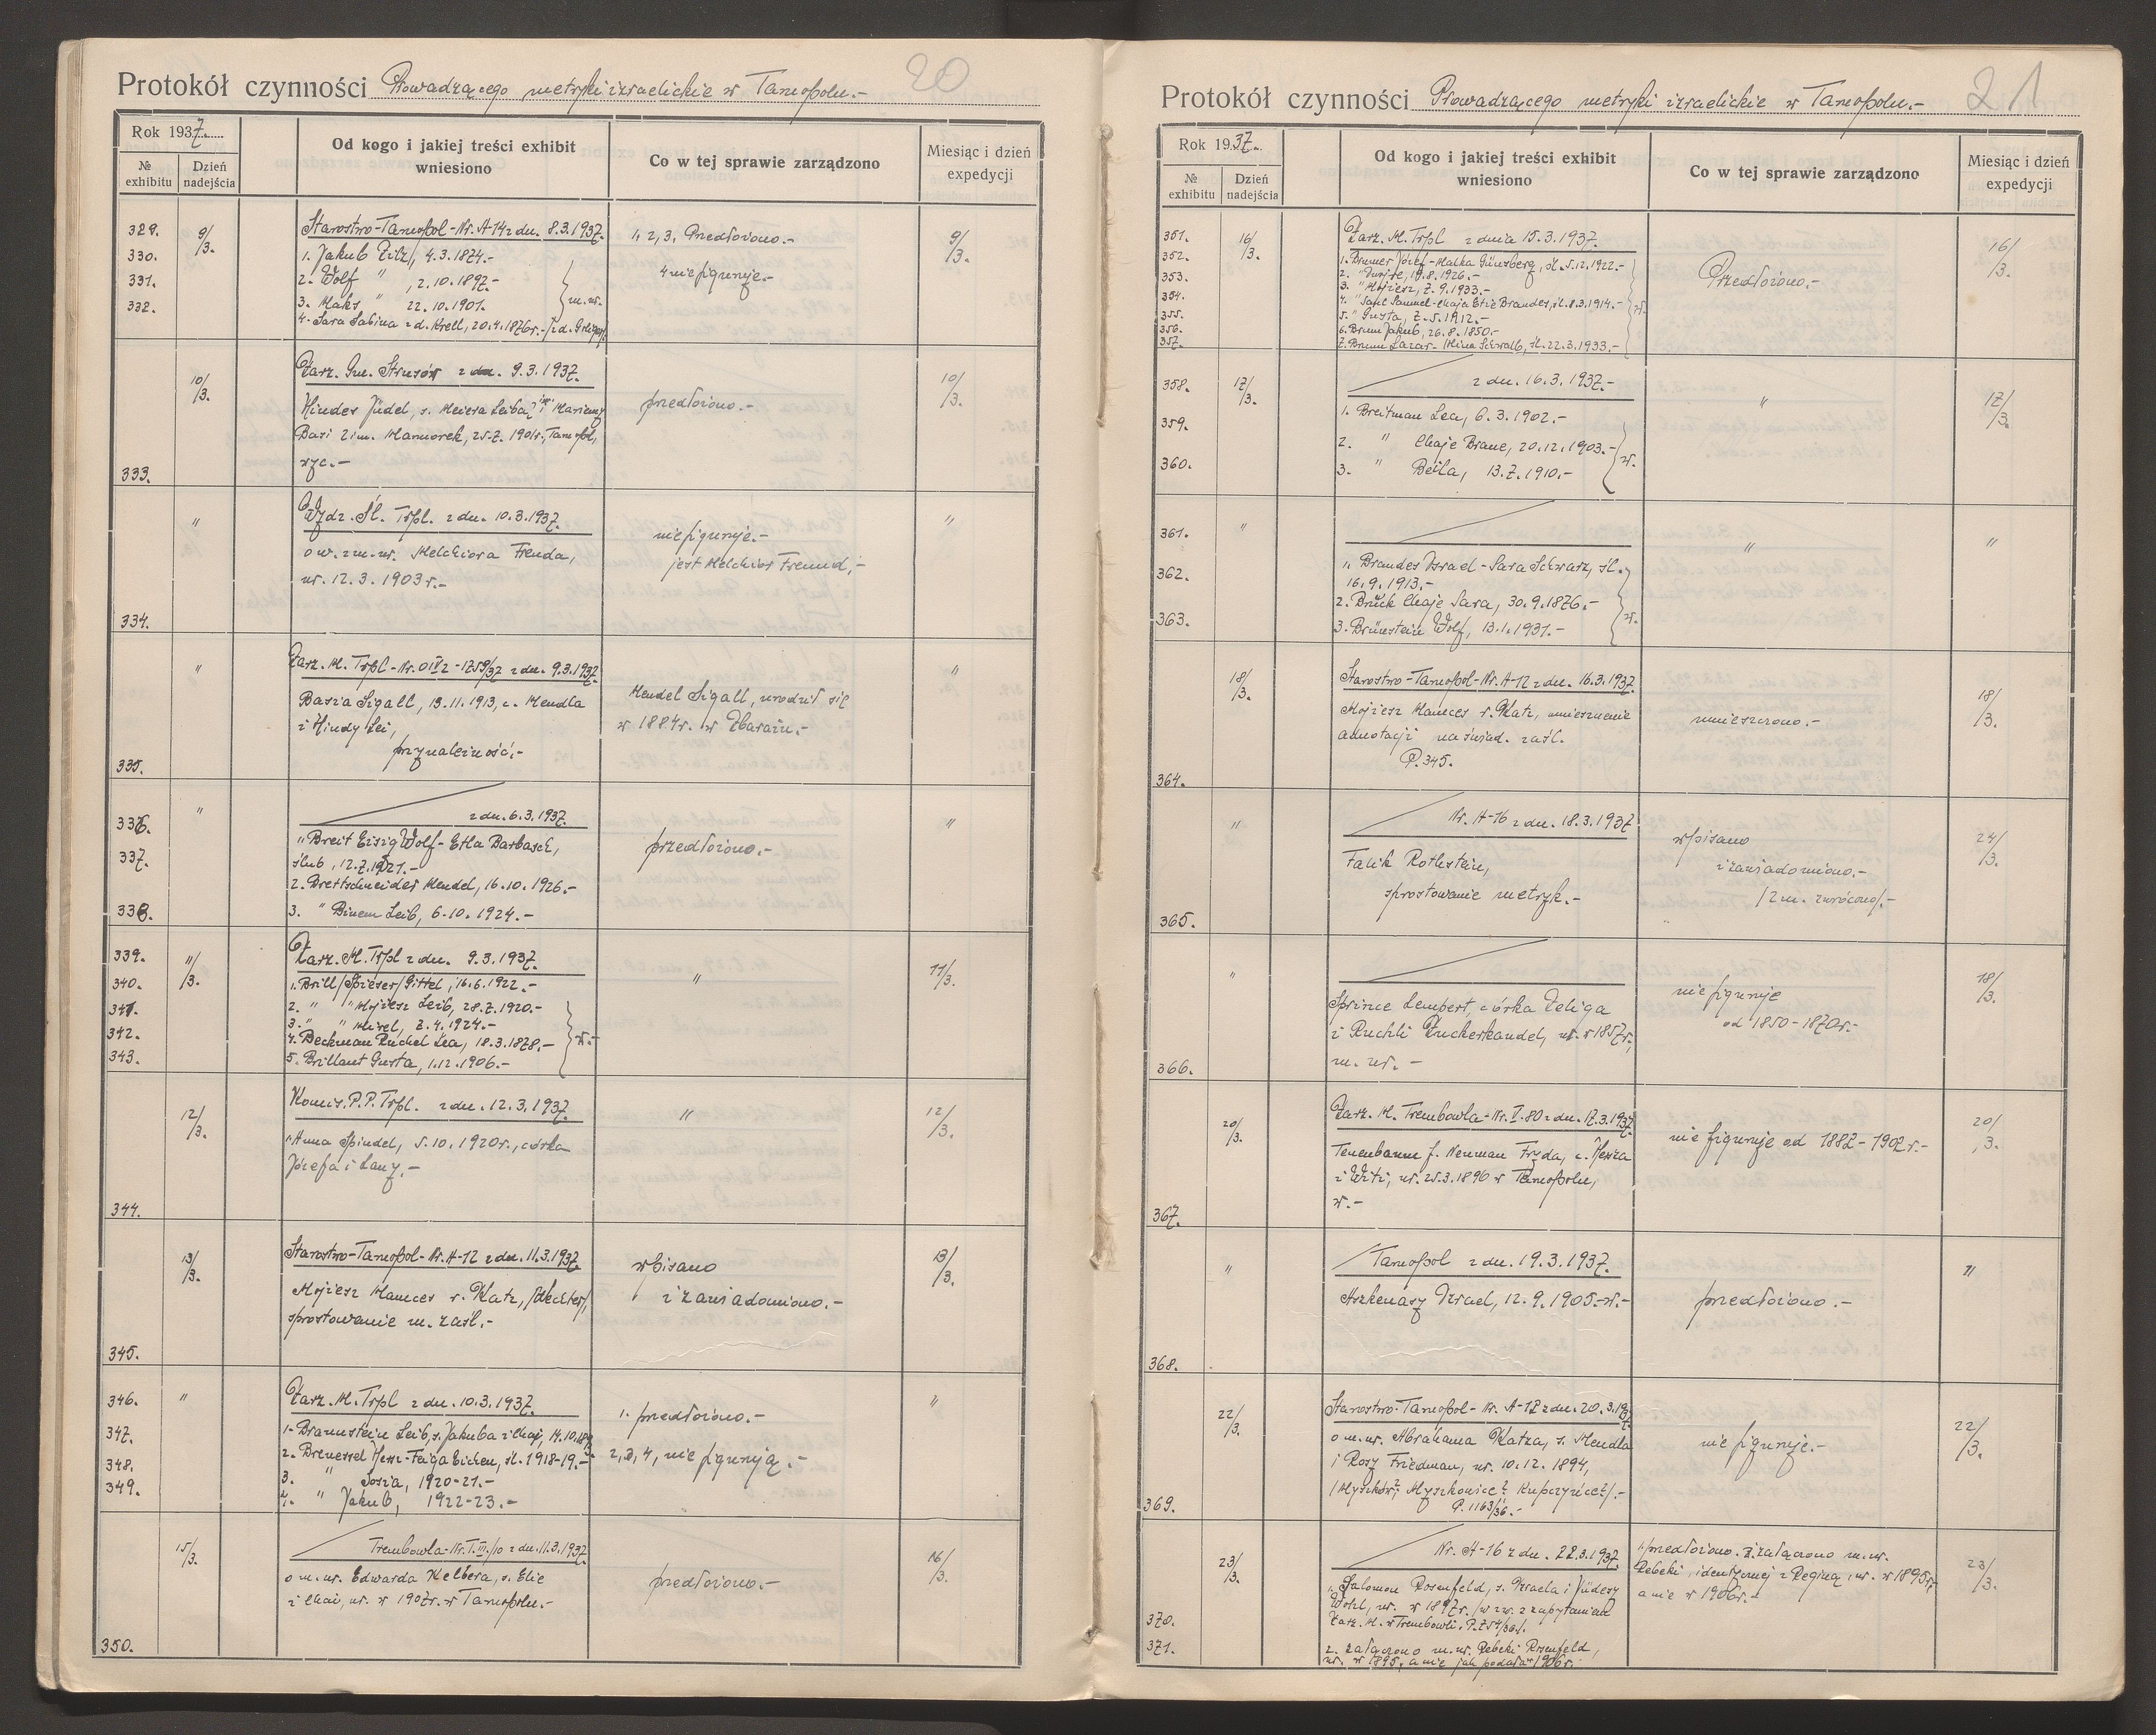 20
Protokół czynności Prowadzącego metryki izraelickie w Tarnopolu.-
Rok 1937.
№ exhibitu
Dzień nadejścia
Od kogo i jakiej treści exhibit wniesiono
Co w tej sprawie zarządzono
Miesiąc i dzień expedycji
329. 9/3. Starostwo-Tarnopol-Nr. A-14 z dn. 8.3.1937. 1, 2, 3, Przedłożono.- 9/3.
330. 1. Jakub Zilz, 4.3.1874.-
4 nie figuruje.-
331. 2. Wolf " , 2.10.1897.-
332. 3. Maks " 22.10.1901. m. ur.
4. Sara Sabina z d. Krell, 20.4.1876r.-
10/3. Zarz. Gm. Strusów z dn. 9.3.1937. 10/3.
Hindes Jüdel, s. Meiera Leiba i Mariemy przedłożono.-
Basi 2 im. Hamorek, 25.7.1901r., Tarnopol,
333. wyc.-
" Wydz. Śl. Trpl. z dn. 10.3.1937. "
o w. z m. ur. Melchiora Frenda, nie figuruje.-
ur. 12.3.1903r.- jest Melchior Freund,-
334.
" Zarz. M. Trpl-Nr. OIV2-1759/37 z dn. 9.3.1937. "
Basia Sigall, 13.11.1913, c. Mendla Mendel Sigall, urodził się
i Hindy Lei, w 1884r. w Zbarażu.-
przynależność.-
335.
336. " z dn. 6.3.1937. "
337. 1. Breit Eisig Wolf-Etla Barbasch, przedłożono.-
ślub, 12.7.1921.-
2. Brettschneider Mendel, 16.10.1926.-
338. 3. " Binem Leib, 6.10.1924.-
339. 11/3. Zarz. M. Trpl z dn. 9.3.1937. " 11/3.
340. 1. Brill/Spieser/Gittel, 16.6.1922.-
341. 2. " " Mojżesz Leib, 28.7.1920.-
3. " " Mirel, 2.4.1924.-
342. 4. Beckman Ruchel Lea, 18.3.1878.- w.-
343. 5. Brillant Gusta, 1.12.1906.-
12/3. Komis. P.P. Trpl. z dn. 12.3.1937. " 12/3.
Anna Spindel, 5.10.1920r., córka
Józefa i Lany.-
344.
13/3. Starostwo-Tarnopol-Nr. A-12 z dn. 11.3.1937. wpisano 13/3.
Mojżesz Hameces v. Katz, /Wechter/, i zawiadomiono.-
sprostowanie m. zaśl.-
345.
346. " Zarz. M. Trpl z dn. 10.3.1937. 1. przedłożono.- "
347. 1. Braunstein Leib, s. Jakuba i Chaj,
348. 2. Brenessel Hersz-Feiga Eichen, śl. 1918-19.- 2, 3, 4, nie figurują.-
349. 3. " Sosia, 1920-21.-
4. " Jakub, 1922-23.-
15/3. Trembowla-Nr. I.III./10 z dn. 11.3.1937. 16/3.
o m. ur. Edwarda Kelbera, s. Elie przedłożono.-
i Chai, ur. w 1907r. w Tarnopolu.-
350.
21
Protokół czynności Prowadzącego metryki izraelickie w Tarnopolu.-
Rok 1937.
№ exhibitu
Dzień nadejścia
Od kogo i jakiej treści exhibit wniesiono
Co w tej sprawie zarządzono
Miesiąc i dzień expedycji
351. 16/3. Zarz. M. Trpl z dnia 15.3.1937. 16/3.
352. 1. Bremer Józef-Malka Günsberg, śl. 5.12.1922.- Przedłożono.-
2. " 19.8.1926.-
353. 3. " Mojżesz, 7.9.1933.-
354. 4. " Saul Samuel-Chaja Etie Brandes, śl. 8.3.1914.- w.
355. 5. " Gusta, 7.5.1912.-
356. 6. Brum Jakub, 26.8.1850.-
357. 7. Brum Lazar- Mina Schwalb, śl. 22.3.1933.-
358. 17/3. z dn. 16.3.1937.- " 17/3.
359. 1. Breitman Lea, 6.3.1902.-
2. " Chaje Brane, 20.12.1903.- w.
360. 3. " Beila, 13.7.1910.-
361. " " "
362. 1. Brandes Israel-Sara Schwarz, śl.
16.9.1913.-
2. Brück Chaje Sara, 30.9.1876.- w.
363. 3. Brünstein Wolf, 13.1.1931.-
18/3. Starostwo-Tarnopol-Nr. A-12 z dn. 16.3.1937. 18/3.
Mojżesz Hameces v. Katz, umieszczenie umieszczono.-
adnotacji na świad. zaśl.
P. 345.
364.
" Nr. A-16 z dn. 18.3.1937 wpisano 24/3.
Falik Rothstein, i zawiadomiono.-
sprostowanie metryk.- /2 m. zwrócono/.-
365.
" 18/3.
Sprince Lempert, córka Zeliga nie figuruje
i Ruchli Zuckerkandel, ur. w 1857r., od 1850-1870r.-
m. ur.-
366.
20/3. Zarz. M. Trembowla-Nr. V-80 z dn. 17.3.1937. nie figuruje od 1882-1902r.- 20/3.
Tenenbaum f. Neuman Fryda, c. Hersza
i Witi, ur. 25.3.1896 w Tarnopolu,
w.-
367.
" Tarnopol z dn. 19.3.1937. "
Aszkenasy Izrael, 12.9.1905.-w.- przedłożono.-
368.
22/3. Starostwo-Tarnopol-Nr. A-12 z dn. 20.3.1937. 22/3.
o m. ur. Abrahama Katza, s. Mendla nie figuruje.-
i Rosy Friedman, ur. 10.12.1894,
/Myszków?, Myszkowice? Kupczyńce?/.-
P. 1163/36.-
369.
23/3. Nr. A-16 z dn. 22.3.1937. 1. przedłożono. 2. załączono m. ur. 23/3.
1. Salomon Rosenfeld, s. Izraela i Jüdesy Rebeki, identycznej z Reginą, ur. w 1895r.,
Wohl, ur. w 1897r. /w zw. z zapytaniem a nie w 1906r.-
370. Zarz. M. w Trembowli,
371. 2. załączono m. ur. Rebeki Rosenfeld,
ur. w 1895, a nie jak podała 1906r.